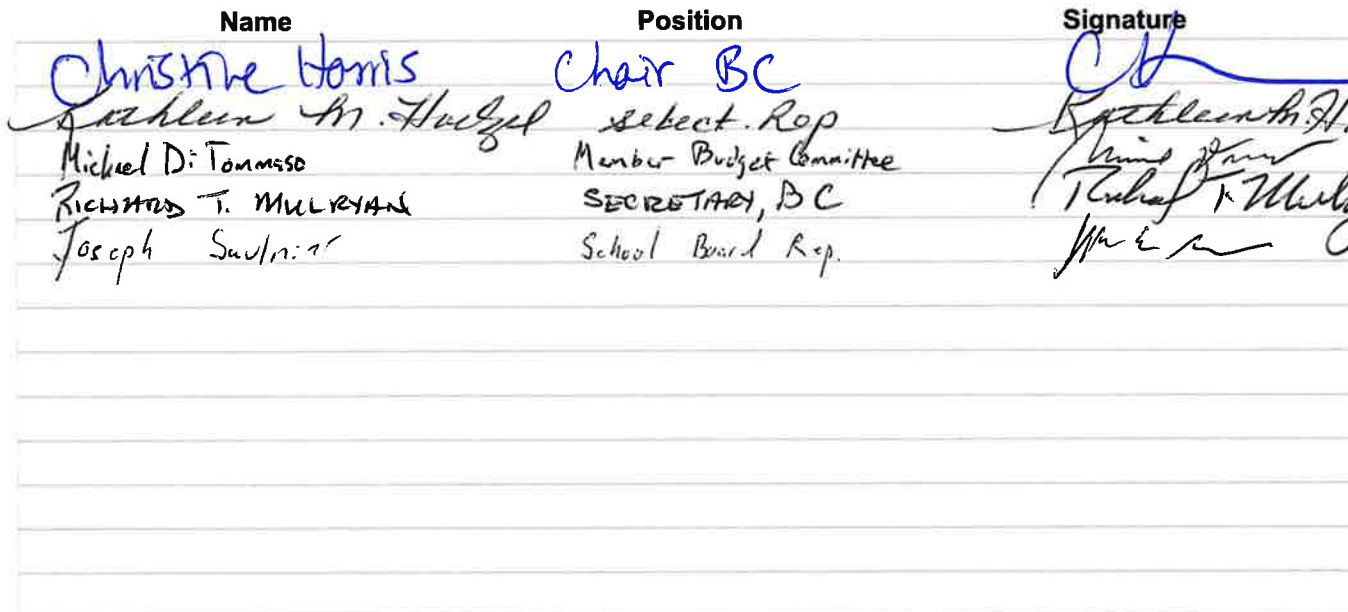 Name Position Signature
Christine Harris Chair BC
Kathleen M. Hoelzel select. Rep Kathleen M. H
Michael Di Tommaso Member Budget Committee
RICHARD T. MULRYAN SECRETARY, BC Richard T. Mulry
Joseph Saulnier School Board Rep.